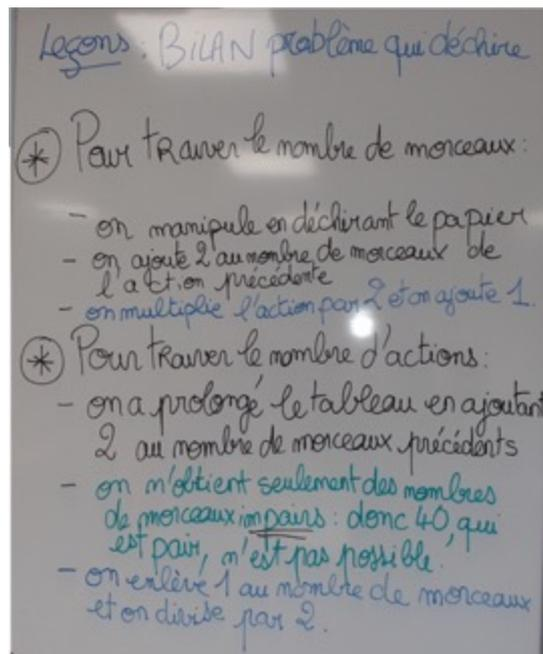 Leçons : BILAN problème qui déchire
* Pour trouver le nombre de morceaux :
- on manipule en déchirant le papier
- on ajoute 2 au nombre de morceaux de
l'action précédente
- on multiplie l'action par 2 et on ajoute 1.
* Pour trouver le nombre d'actions :
- on a prolongé le tableau en ajoutant
2 au nombre de morceaux précédents
- on n'obtient seulement des nombres
de morceaux impairs : donc 40, qui
est pair, n'est pas possible.
- on enlève 1 au nombre de morceaux
et on divise par 2.